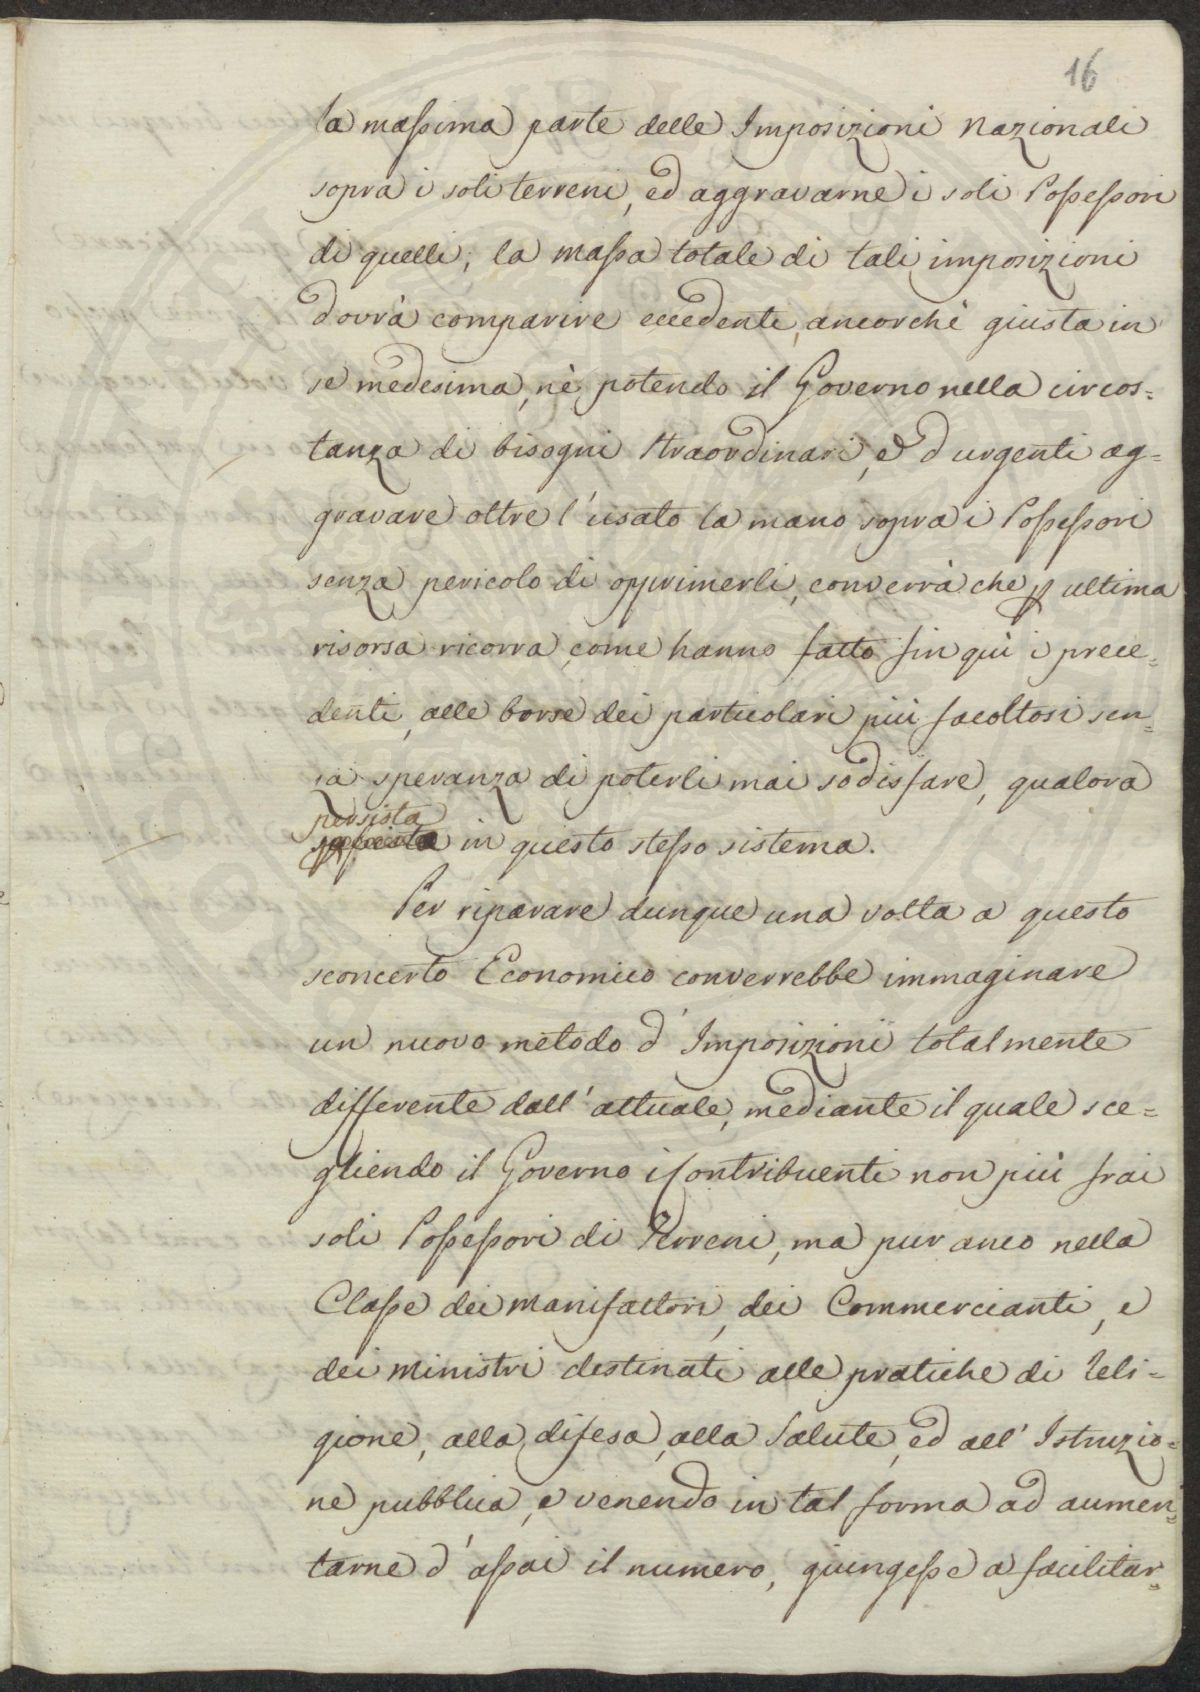 16
la massima parte delle Imposizioni Nazionali
sopra i soli terreni, ed aggravarne i soli Possessori
di quelli; la massa totale di tali imposizioni
dovrà comparire eccedente, ancorchè giusta in
se medesima, nè potendo il Governo nella circos=
tanza di bisogni straordinari, ed urgenti ag=
gravare oltre l'usato la mano sopra i Possessori
senza pericolo di opprimerli, converrà che p ultima
risorsa ricorra, come hanno fatto fin quì i prece=
denti, alle borse dei particolari più facoltosi sen=
sa speranza di poterli mai sodisfare, qualora
persista
in questo stesso sistema.
Per riparare dunque una volta a questo
sconcerto Economico converrebbe immaginare
un nuovo metodo d'Imposizioni totalmente
differente dall'attuale, mediante il quale sce=
gliendo il Governo i Contribuenti non più frai
soli Possessori di Terreni, ma pur anco nella
Classe dei manifattori, dei Commercianti, e
dei ministri destinati alle pratiche di Reli=
gione, alla difesa, alla Salute, ed all'Istruzio=
ne pubblica, e venendo in tal forma ad aumen=
tarne d'assai il numero, giungesse a facilitar=